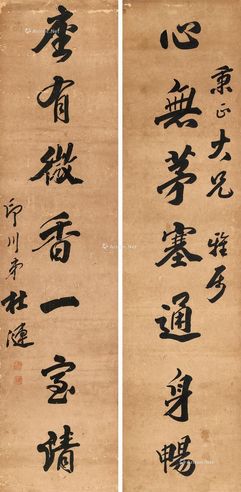 秉正大兄雅属
心無茅塞通身暢
座有微香一室清
印川弟杜漣